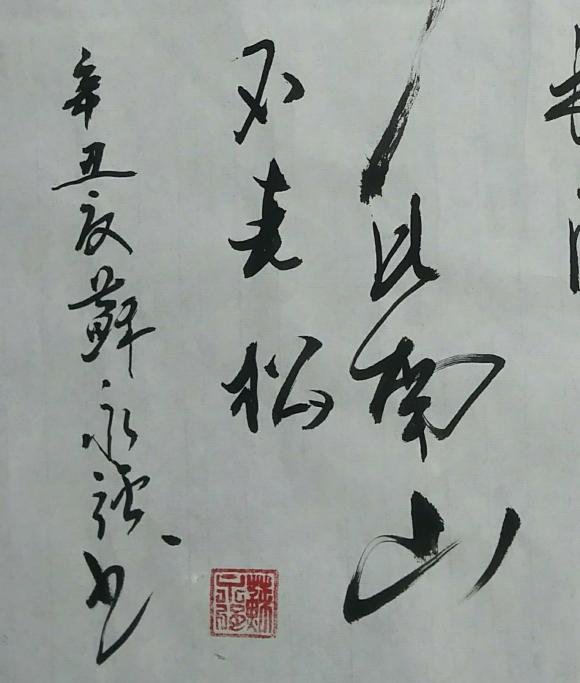 比南山
不老松
辛丑蘇永強书
蘇永強